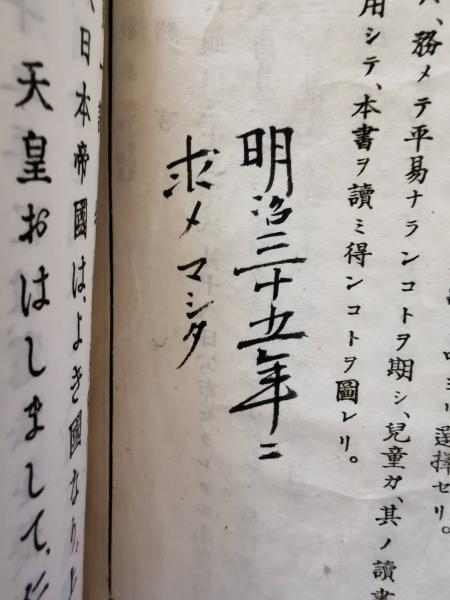 ヨリ選擇セリ。
務メテ平易ナランコトヲ期シ、兒童ガ、其ノ讀書
用シテ、本書ヲ讀ミ得ンコトヲ圖レリ。
明治三十五年ニ
求メマシタ
日本帝國は、よき國なり、
天皇おはしまして、